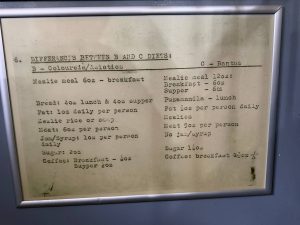 5. DIFFERENCES BETWEEN B AND C DIETS:
B - Coloureds/Asiatics C - Bantus
Mealie meal 6oz - breakfast Mealie meal 12oz:
Breakfast - 6oz
Supper - 6oz
Bread: 4oz lunch & 4oz supper Puzamandla - lunch
Fat: 1oz daily per person Fat 1oz per person daily
Mealie rice or samp. Mealies
Meat: 6oz per person Meat 5oz per person
Jam/Syrup: 1oz per person No jam/syrup
daily
Sugar: 2oz Sugar 1½oz
Coffee: Breakfast - Coffee: breakfast
Supper